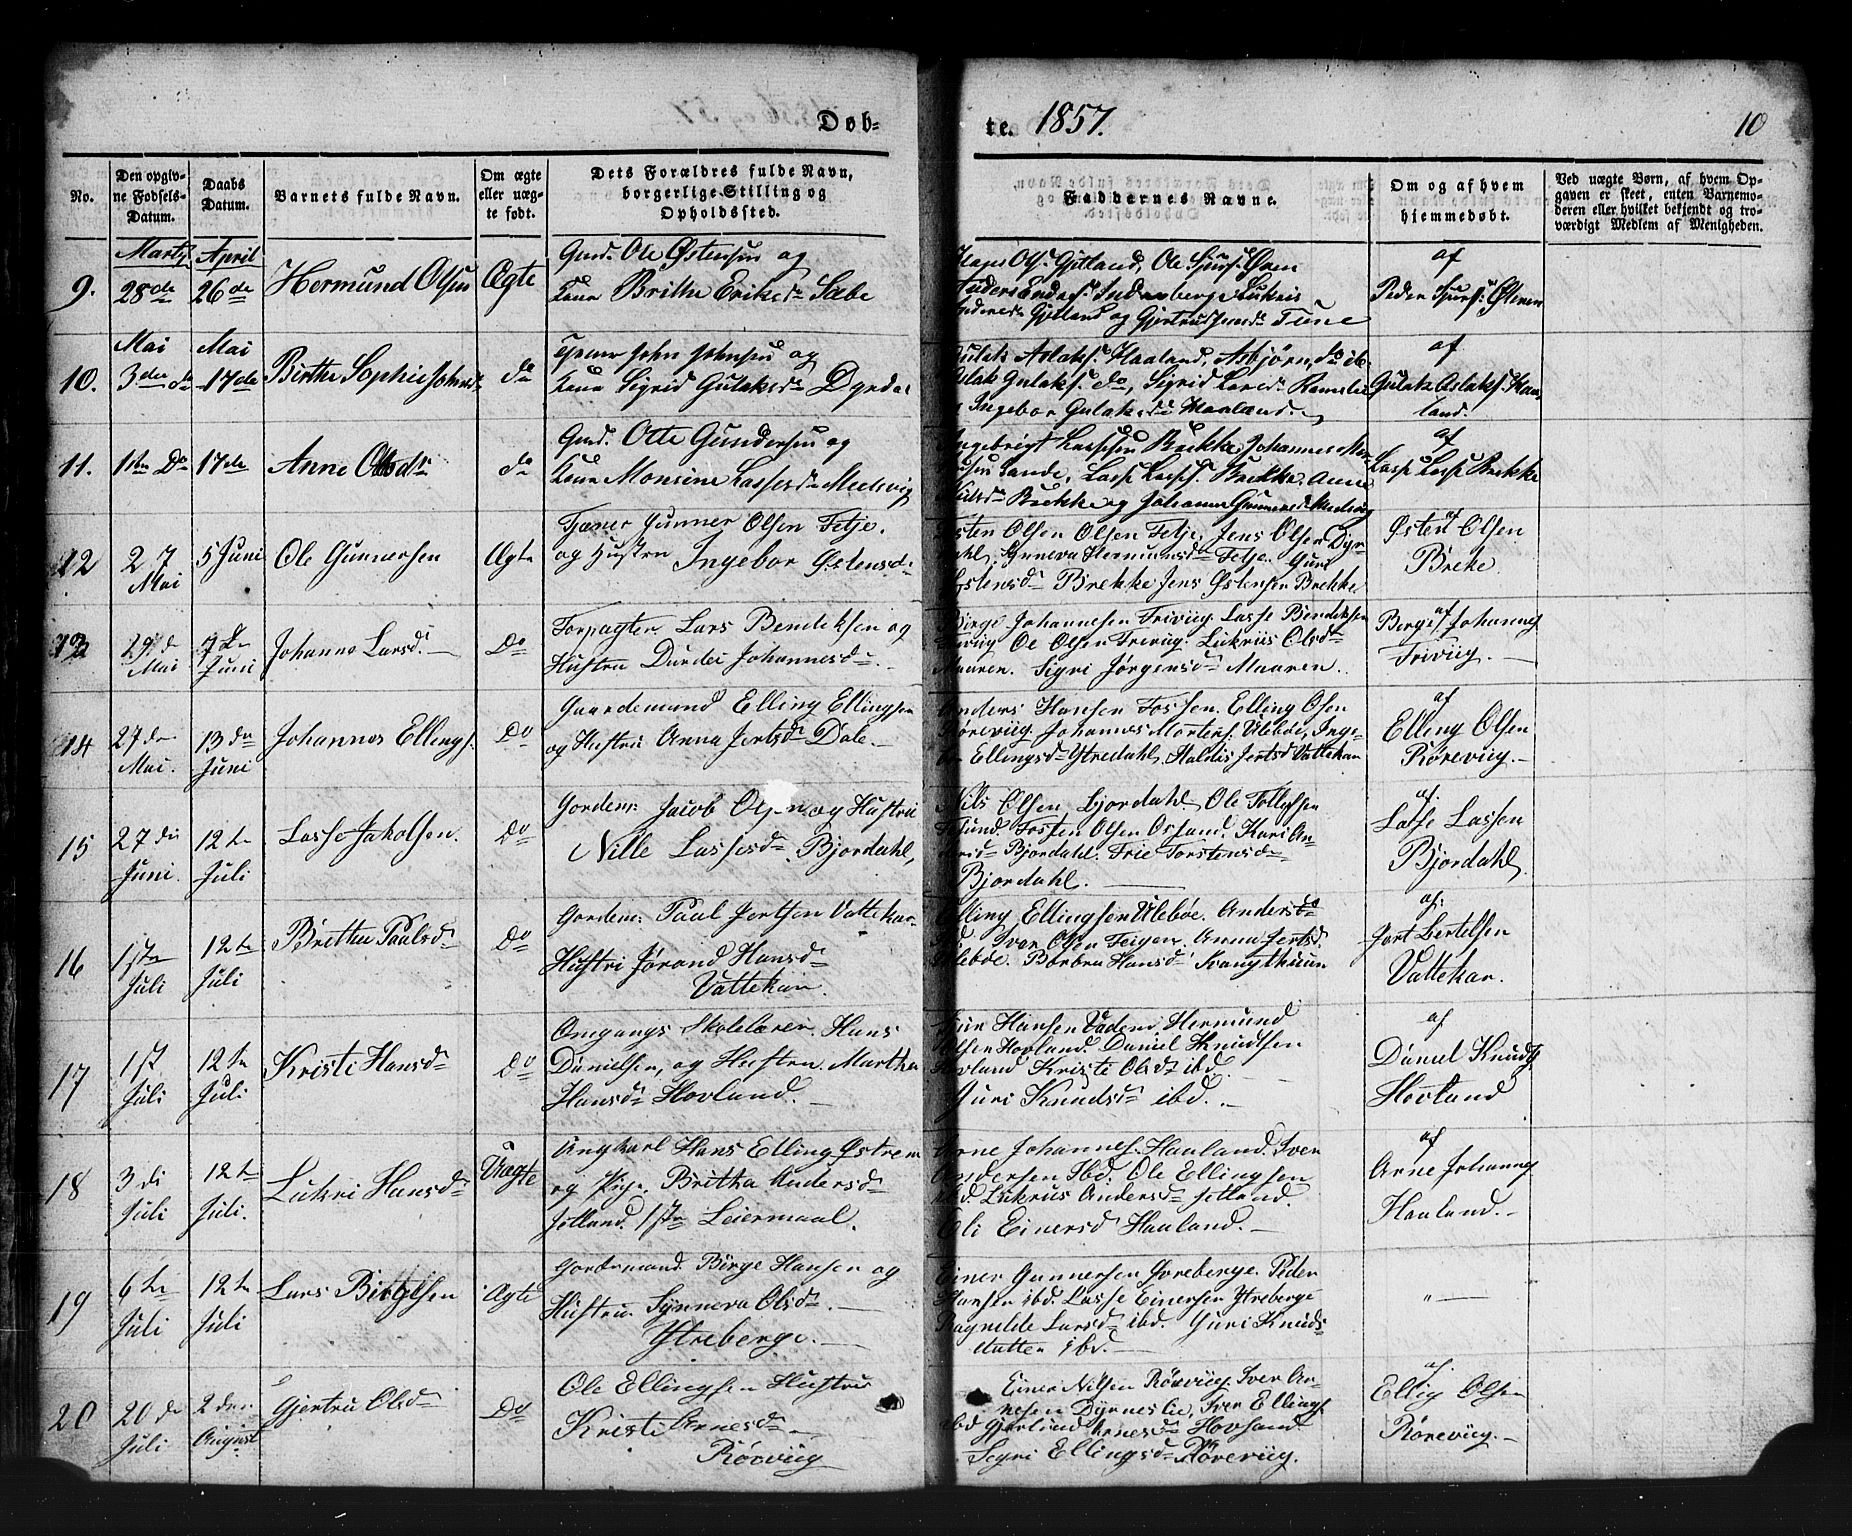 Døb-
te. 1857.
10
No.
Den opgiv-
ne Fødsels-
Datum.
Daabs
Datum.
Barnets fulde Navn.
Om ægte
eller uæg-
te født.
Dets Forældres fulde Navn,
borgerlige Stilling og
Opholdssted.
Faddernes Navne.
Om og af hvem
hjemmedøbt.
Ved uægte Børn, af hvem Op-
gaven er skeet, enten Barnemo-
deren eller hvilket bekjendt og tro-
værdigt Medlem af Menigheden.
Marts
April
9.
28de
26de
Hermund Olsen
Ægte
Gmd. Ole Østensen og
Kone Brithe Eriksdr Sæbø
Hans Ols. Gjilland, Ole Sjurs. Øren
Anders Endes. Inderberge Lukris
Andersdr Gjilland og Gjertrud Jensdr Tune
af
Peder Sjurs. Østeren
Mai
Mai
10.
3die do
17de
Birthe Sophie Johnsdr
do
Tjener John Johnsen og
Kone Sigrid Gulaksdr Dyrdal
Gulak Aslaks. Haaland, Asbjørn do ib.
Aslak Gulaks. do, Sigrid Larsdr
og Ingebor Gulaksdr Haaland
af
Gulak Aslaks. Haa-
land.
11.
1ste Do
17de
Anne Ottesdr
do
Gmd. Otte Gundersen og
Kone Monsine Lassesdr Medsvig
Ingebrigt Lassesen Brekke, Johannes
Sande, Lasse Lasses. Brekke, Anne
Nielsdr Brekke og Johanne Gunnersdr Medsvig
af
Lasse Lasses. Brekke
12
27
Mai
5 Juni
Ole Gunnersen
Ægte
Tjæner Gunner Olsen Tetje.
og Hustru Ingebor Østensdr
Østen Olsen Olsen Tetje, Jens Olsen Dyr-
dahl, Synneva Hermundsdr Tetje. Guri
Østensdr Brekke Jens Østensen Brekke
af
Østen Olsen
Breke
13
29de
Mai
7de
Juni
Johanne Larsdr
Do
Forpagter Lars Bendiksen og
Hustru Durdei Johannesdr
Børge Johannesen Trivug. Lasse Bendiksen
Trevug Ole Olsen Trevug. Lukriis Olsdr
Maaren. Sigri Jørgensdr Maaren.
af
Berge Johannes
Trivug.
14
27de
Mai.
13de
Juni
Johannes Ellings.
Do
Gaardemand Elling Ellingsen
og Hustru Anna Jertsdr Dale
Anders Hansen Fossen. Elling Olsen
Rørevug. Johannes Mortens. Ulebøe, Inge-
bor Ellingsdr Ytredahl. Haldis Jertsdr Vattekar
af
Elling Olsen
Rørevug.
15
27de
Juni.
12te
Juli
Lasse Jakobsen.
Do
Gordem: Jacob Olsen og Hustru
Nille Lassesdr Bjordahl,
Nils Olsen Bjordahl, Ole Tollefsen
Tosten Olsen Osland. Kari An-
dersdr Bjordahl. Trie Torstensdr
Bjordahl.
af.
Lasse Lassen
Bjordahl,
16
1ste
Juli
12te
Juli
Britha Paulsdr
Do
Gordem: Paul Jertsen Vattekar
Hustru Jørand Hansdr
Vattekar.
Elling Ellingsen Ulebøe. Anders do
ibd. Iver Olsen Teigen. Anna Jertsd.
Ulebøe. Barbra Hansdr Svangthuun
af.
Jort Bertelsen
Vattekar.
17
1st
Juli
12te
Juli
Kristi Hansdr
Do
Omgangs Skolelærer. Hans
Danielsen, og Hustru Martha
Hansdr Hovland.
Sjur Hansen Vadem Hermund
Olsen Hovland. Daniel Knudtsen
Hovland Kristi Olsdr ibd
Guri Knudsdr ibd.
af
Daniel Knuds.
Hovland
18
3di
Juli
12te
Juli.
Lukri Hansdr
Uægte
Ungkarl Hans Elling. Østrem
og Pige. Britha Andersdr
Jotland. 1ste Leiermaal.
Arne Johannes. Haaland. Iver
Andersen Ibd. Ole Ellingsen
ibd. Lukrus Andersdr Jotland.
Oli Einersd Haaland.
af
Arne Johannes
Haaland.
19
6te
Juli
12te
Juli
Lars Birgesen
Ægte
Gordemand. Børge Hansen og
Hustru. Synneva Olsdr
Ytreberge.
Einer Gunnersen Øvreberge. Peder
Hansen ibd. Lasse Einersen Ytreberge
Ragnilde Larsdr ibd. Guri Knuds-
datter ibd.
"
20
20de
Juli
2den
August
Gjertru Olsdr
Do
Ole Ellingsen Hustru
Kristi Arnesdr
Rørviig
Einer Nilsen Rørviig. Iver Ar-
nesen Dyrneslie, Iver Ellings.
ibd Gjerlaud Arnesdr Hovland
Segri Ellingsdr Rørevug.
af.
Ellig Olsen
Rørevug.